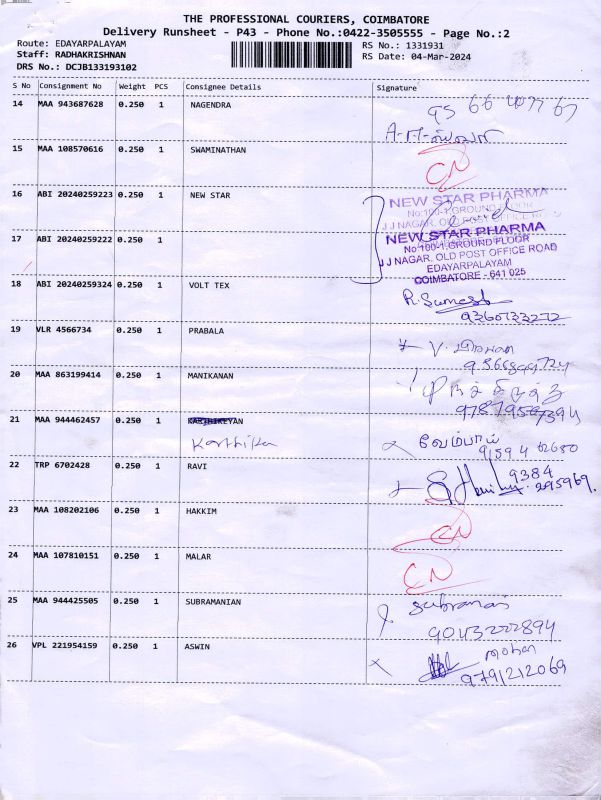 THE PROFESSIONAL COURIERS, COIMBATORE
Delivery Runsheet - P43 - Phone No.:0422-3505555 - Page No.:2
Route: EDAYARPALAYAM
Staff: RADHAKRISHNAN
DRS No.: DCJB133193102
RS No.: 1331931
RS Date: 04-Mar-2024
S No Consignment No Weight PCS Consignee Details Signature
14 MAA 943687628 0.250 1 NAGENDRA
15 MAA 108570616 0.250 1 SWAMINATHAN
CN
16 ABI 20240259223 0.250 1 NEW STAR
NEW STAR PHARMA
No:100-1,GROUND FLOOR
J J NAGAR, OLD POST OFFICE RO
17 ABI 20240259222 0.250 1
NEW STAR PHARMA
No 100-1,GROUND FLOOR
J J NAGAR, OLD POST OFFICE ROAD
EDAYARPALAYAM
COIMBATORE - 641 025
18 ABI 20240259324 0.250 1 VOLT TEX
R. Sumesh
9360733272
19 VLR 4566734 0.250 1 PRABALA
20 MAA 863199414 0.250 1 MANIKANAN
21 MAA 944462457 0.250 1
22 TRP 6702428 0.250 1 RAVI
9384
295969.
23 MAA 108202106 0.250 1 HAKKIM
CN
24 MAA 107810151 0.250 1 MALAR
CN
25 MAA 944425505 0.250 1 SUBRAMANIAN
9043222894
26 VPL 221954159 0.250 1 ASWIN
mohan
9791212069